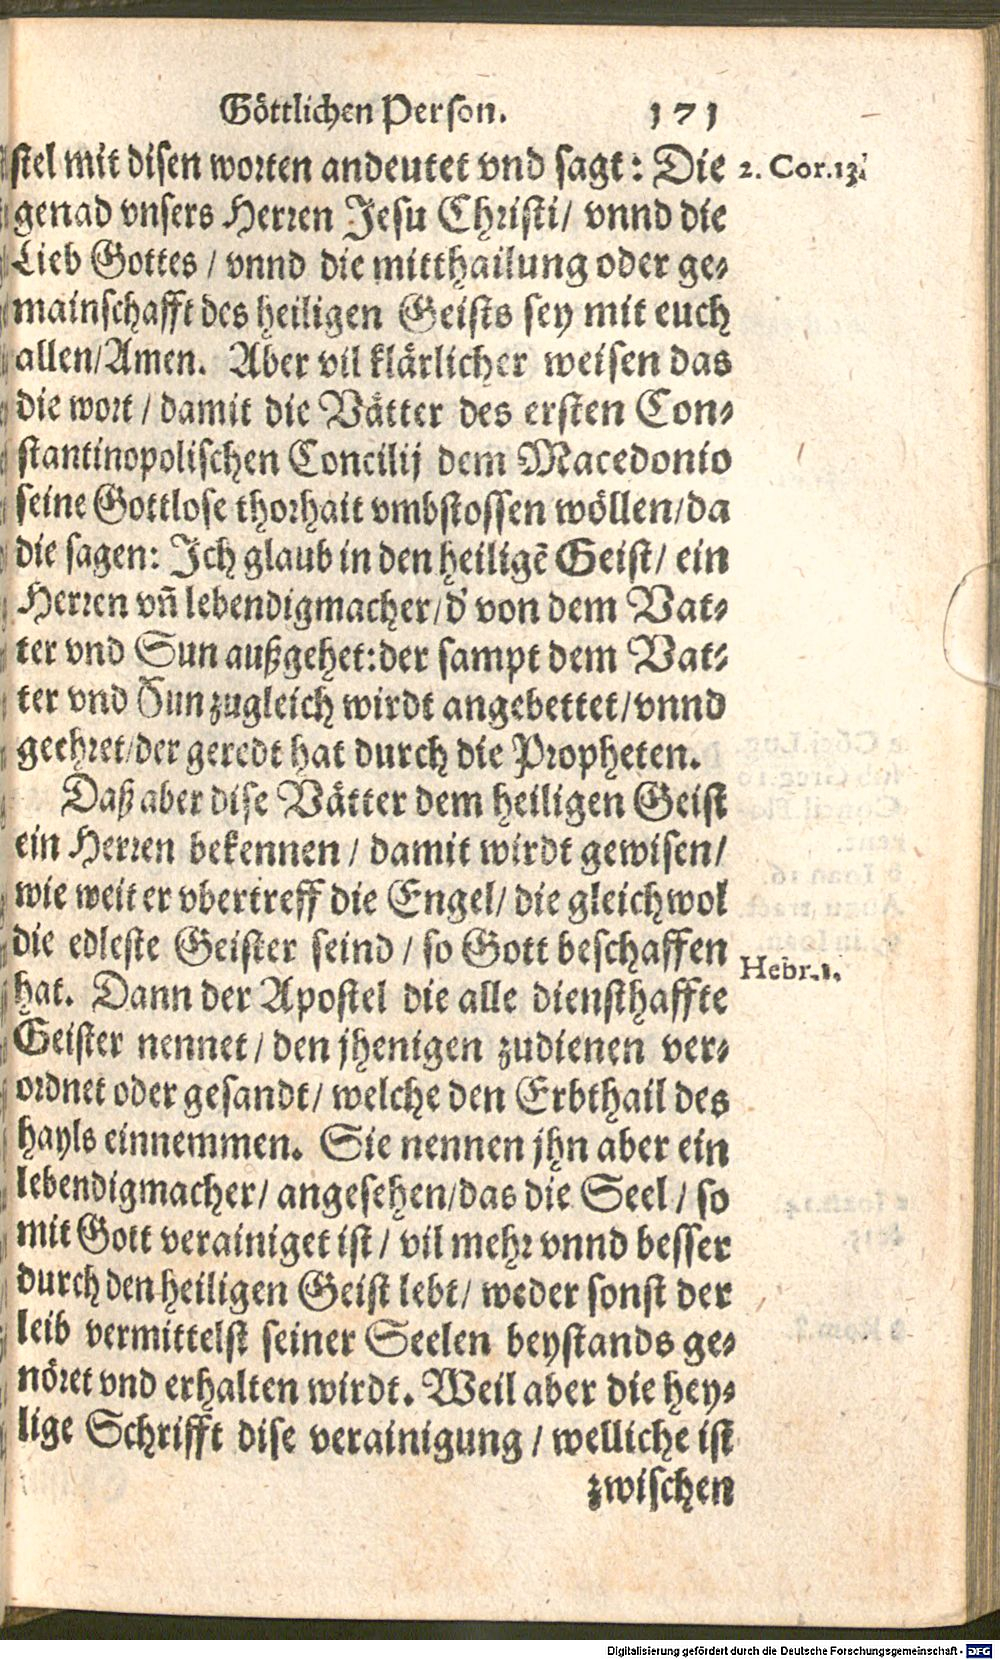 Göttlichen Person. 171
stel mit disen worten andeutet vnd sagt: Die 2. Cor. 13.
genad vnsers Herren Jesu Christi/ vnnd die
Lieb Gottes / vnnd die mitthailung oder ge⸗
mainschafft des heiligen Geists sey mit euch
allen/Amen. Aber vil klärlicher weisen das
die wort / damit die Vätter des ersten Con⸗
stantinopolischen Concilij dem Macedonio
seine Gottlose thorhait vmbstossen wöllen/da
die sagen: Ich glaub in den heiligẽ Geist/ ein
Herren vñ lebendigmacher/d' von dem Vat⸗
ter vnd Sun außgehet:der sampt dem Vat⸗
ter vnd Sun zugleich wirdt angebettet/vnnd
geehret/der geredt hat durch die Propheten.
Daß aber dise Vätter dem heiligen Geist
ein Herren bekennen / damit wirdt gewisen/
wie weit er vbertreff die Engel/ die gleichwol
die edleste Geister seind / so Gott beschaffen
hat. Dann der Apostel die alle diensthaffte Hebr. 1.
Geister nennet / den jhenigen zudienen ver⸗
ordnet oder gesandt/ welche den Erbthail des
hayls einnemmen. Sie nennen jhn aber ein
lebendigmacher/ angesehen/das die Seel / so
mit Gott verainiget ist / vil mehr vnnd besser
durch den heiligen Geist lebt/ weder sonst der
leib vermittelst seiner Seelen beystands ge⸗
nöret vnd erhalten wirdt. Weil aber die hey⸗
lige Schrifft dise verainigung / welliche ist
zwischen
Digitalisierung gefördert durch die Deutsche Forschungsgemeinschaft - DFG